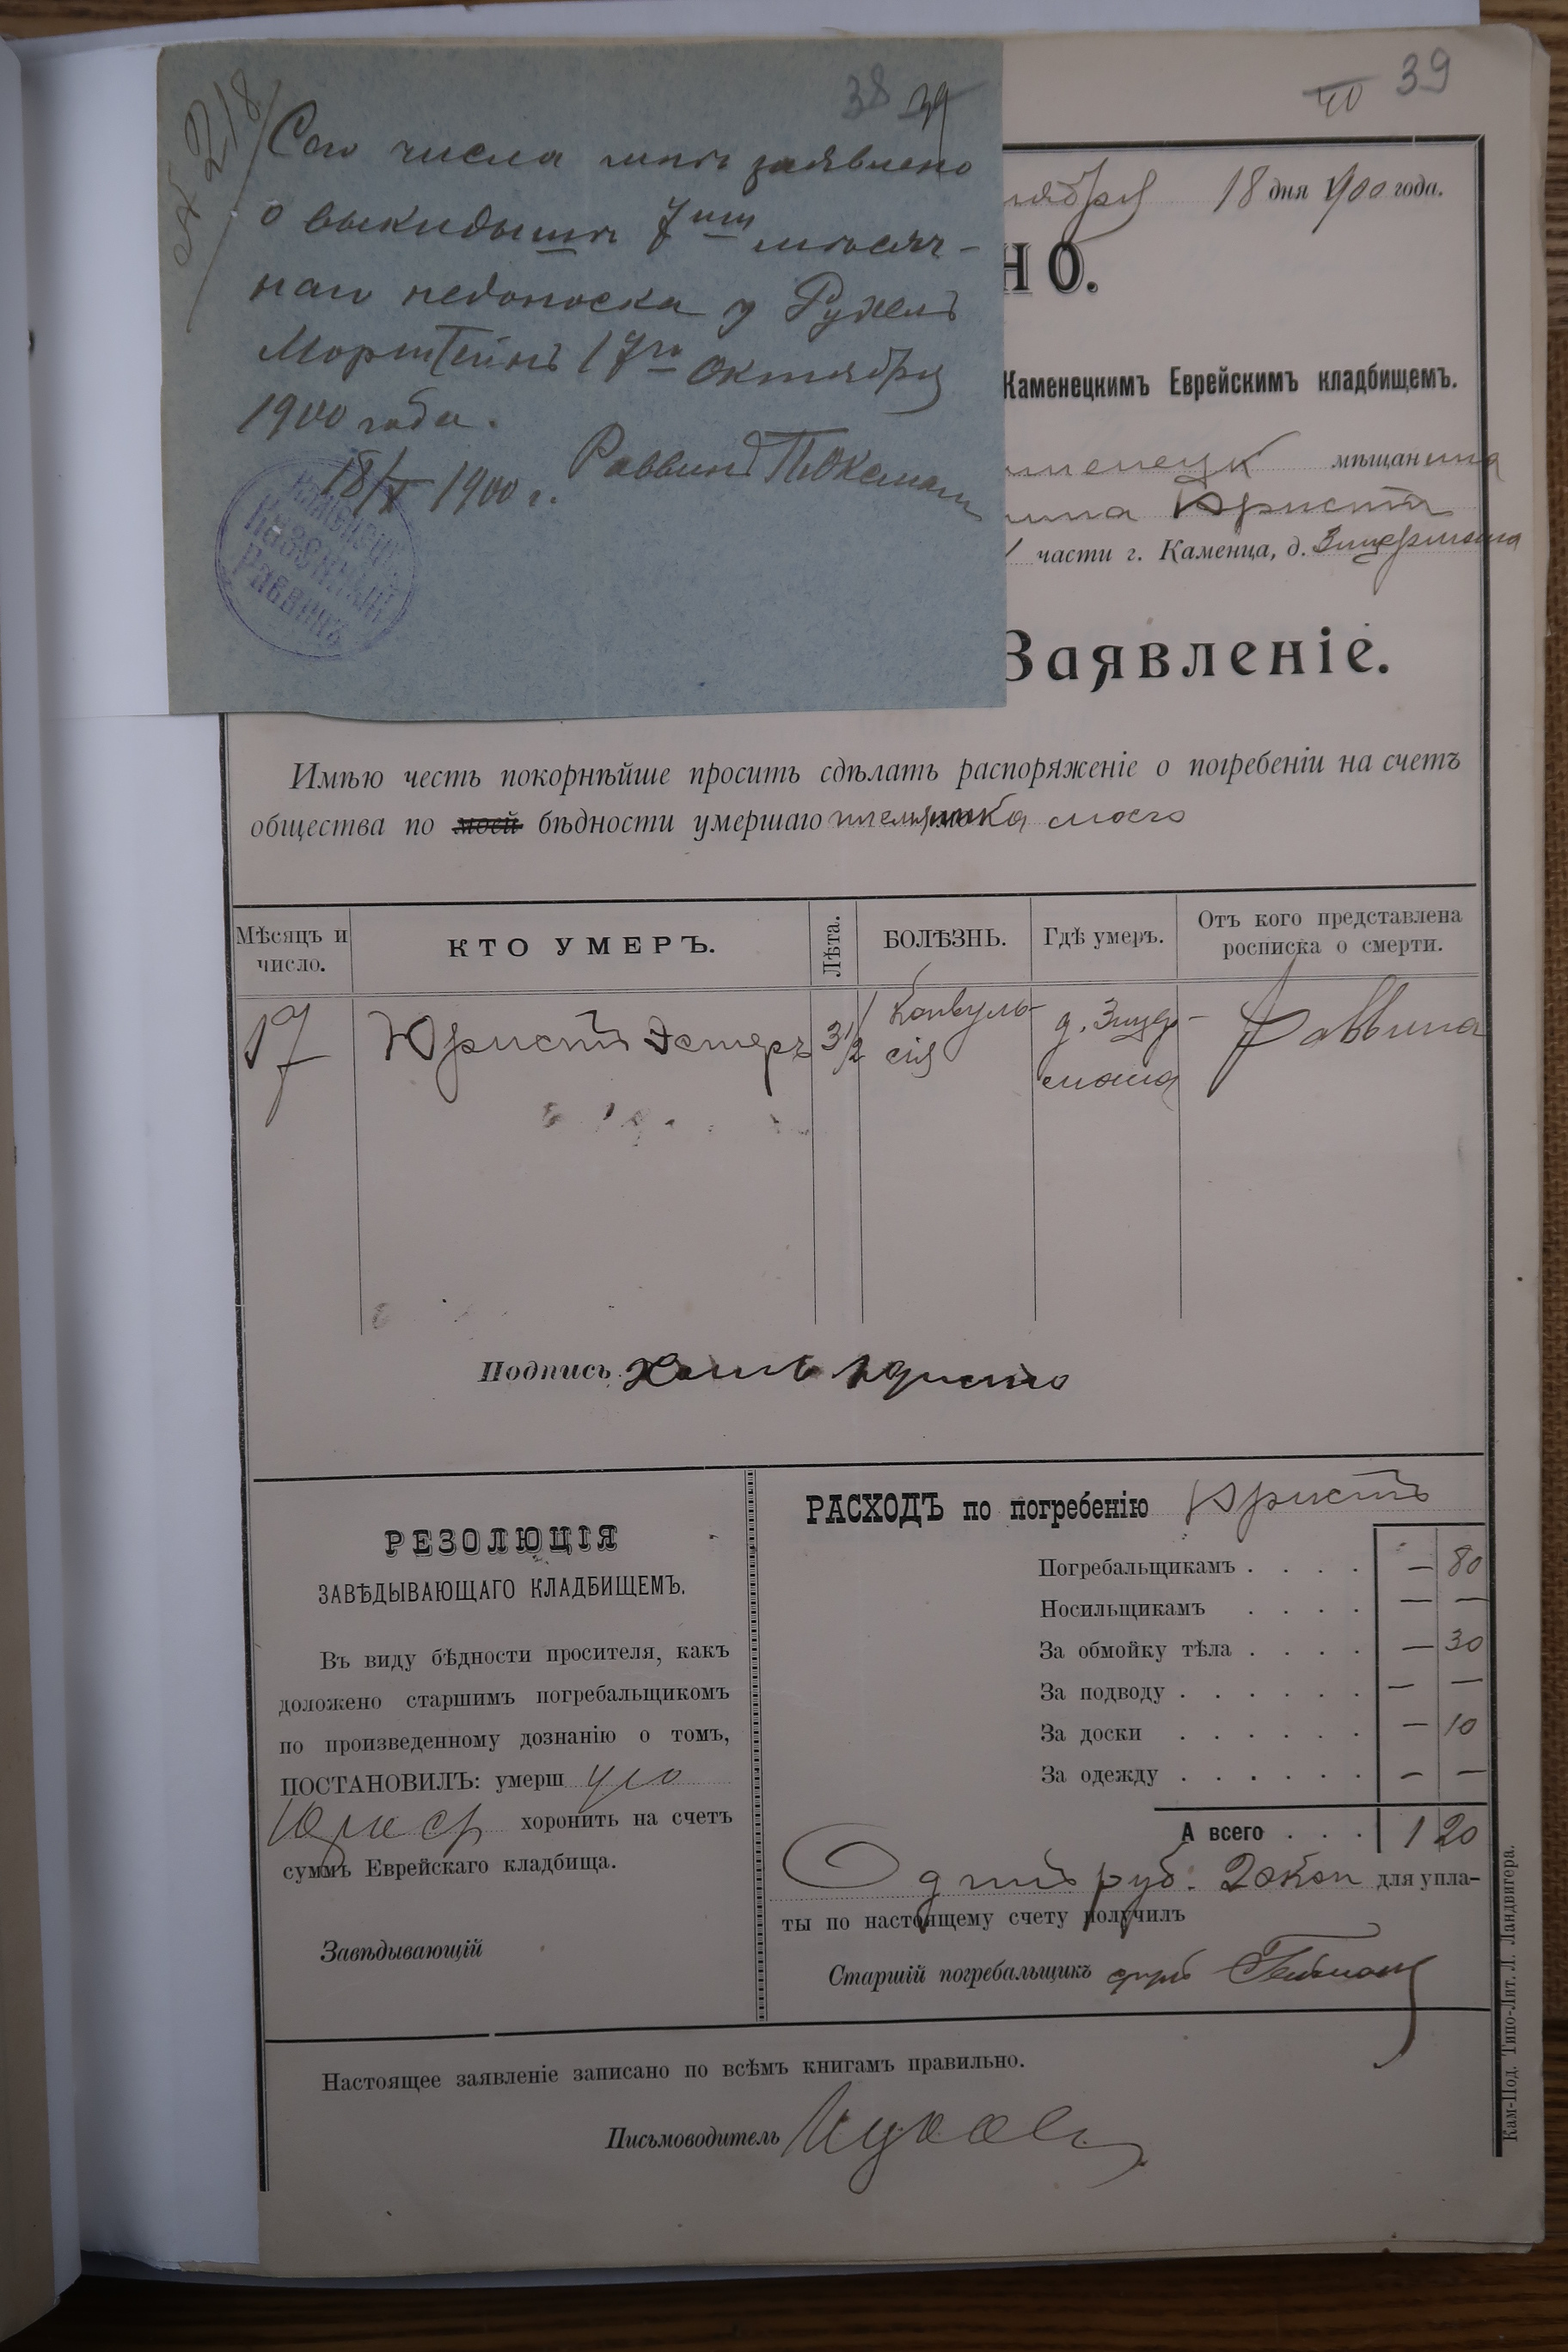 38 39
№ 218
Сего числа мнѣ заявлено
о выкидышѣ 7ми мѣсяч-
наго недоноска у Рухель
Морштейнъ 17го октября
1900 года.
18/X 1900 г. Раввинъ
Каменецкій
Казенный
Раввинъ
40 39
ктября 18 дня 1900 года.
НО.
Каменецкимъ Еврейскимъ кладбищемъ.
менецк мѣщанина
Юристъ
части г. Каменца, д. Зицермана
Заявленіе.
Имѣю честь покорнѣйше просить сдѣлать распоряженіе о погребеніи на счетъ
общества по моей бѣдности умершаго племянника моего
Мѣсяцъ и число. КТО УМЕРЪ. Лѣта. БОЛѢЗНЬ. Гдѣ умеръ. Отъ кого представлена росписка о смерти.
17 Юристъ Эстеръ 3 1/2 Конвуль- д. Зицер- Раввина
сія мана
Подпись Юристъ
РЕЗОЛЮЦІЯ
ЗАВѢДЫВАЮЩАГО КЛАДБИЩЕМЪ.
Въ виду бѣдности просителя, какъ
доложено старшимъ погребальщикомъ
по произведенному дознанію о томъ,
ПОСТАНОВИЛЪ: умерш
Юрист хоронить на счетъ
суммъ Еврейскаго кладбища.
Завѣдывающій
РАСХОДЪ по погребенію Юристъ
Погребальщикамъ . . . . — 80
Носильщикамъ . . . . — —
За обмойку тѣла . . . . — 30
За подводу . . . . . . — —
За доски . . . . . . — 10
За одежду . . . . . . — —
А всего . . . 1 20
Одинъ руб. 20 коп для упла-
ты по настоящему счету получилъ
Старшій погребальщикъ
Настоящее заявленіе записано по всѣмъ книгамъ правильно.
Письмоводитель
Кам-Под. Типо-Лит. Л. Ландвигера.